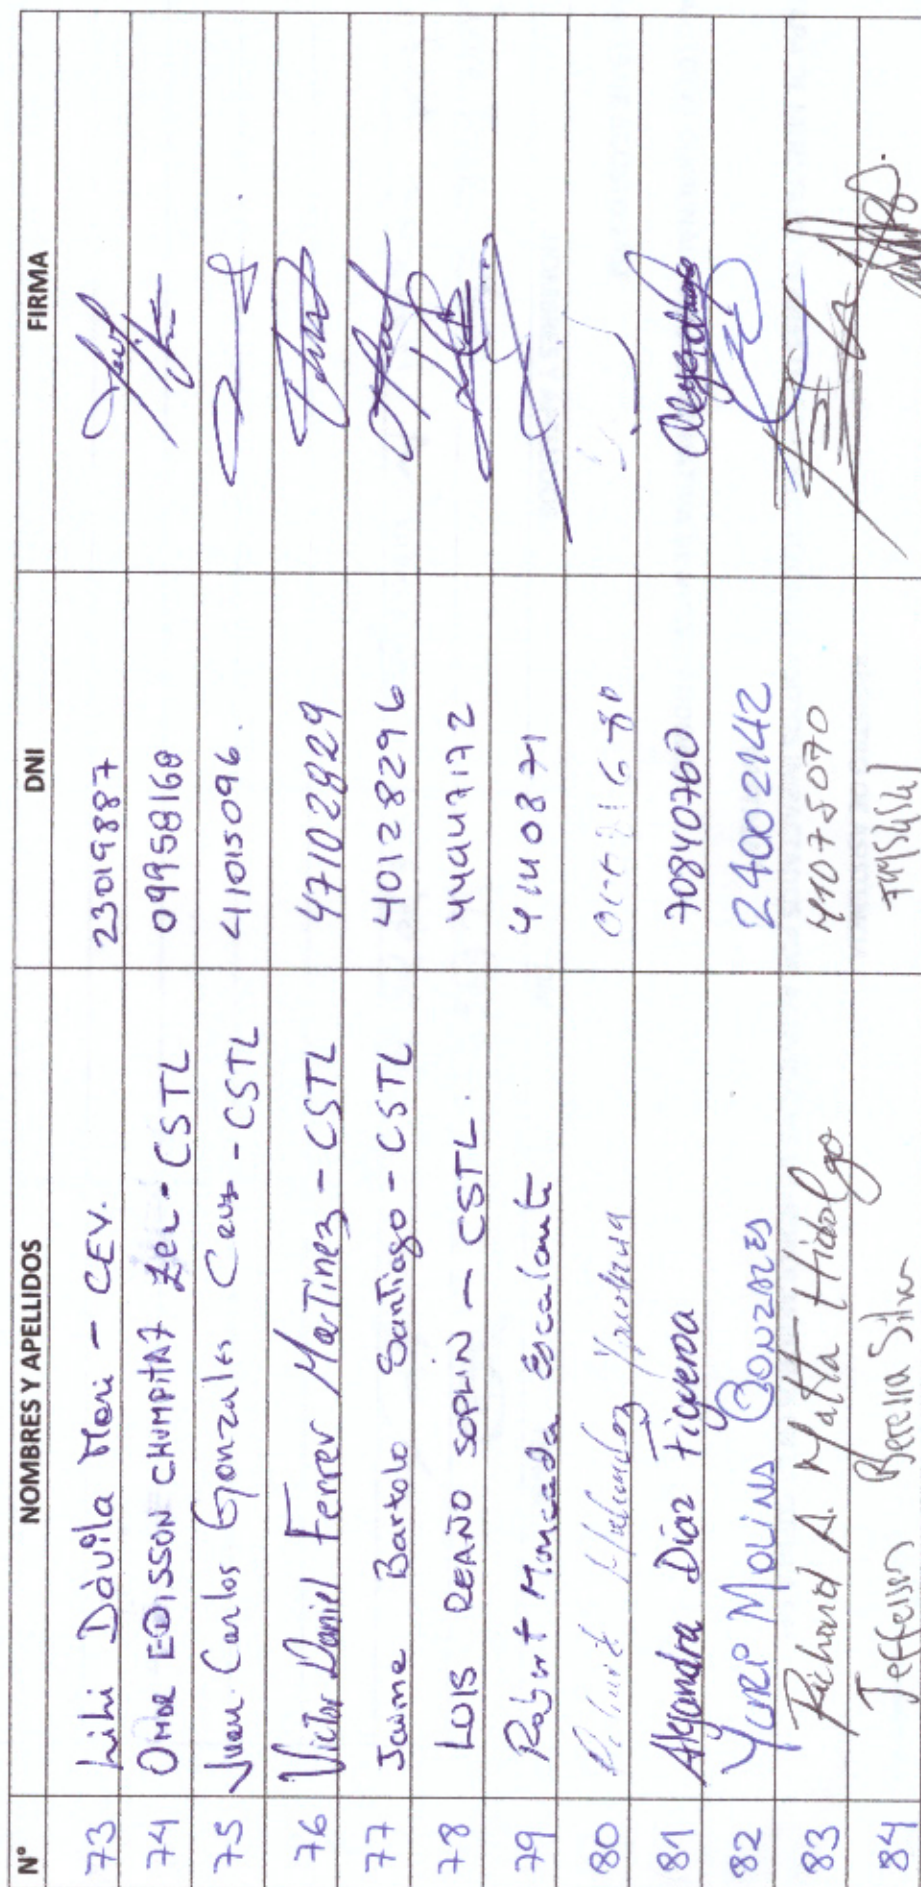 N° NOMBRES Y APELLIDOS DNI FIRMA
73 Lihi Dàvila Mori - CEV. 23019887
74 OMAR EDISSON CHUMPITAZ - CSTL 09958168
75 Juan Carlos Gonzales Cruz - CSTL 41015096.
76 Victor Daniel Ferrer Martinez - CSTL 47102829
77 Jaime Bartolo Santiago - CSTL 40128296
78 LUIS REAÑO SOPLIN - CSTL. 44947172
79 Robert Moncada Escalante
80
81 Alejandra Diaz Figueroa 70840760
82 YURI MOLINA GONZALES 24002142
83 Richard A. Matta Hidalgo 41075070
84 Jefferson Silva